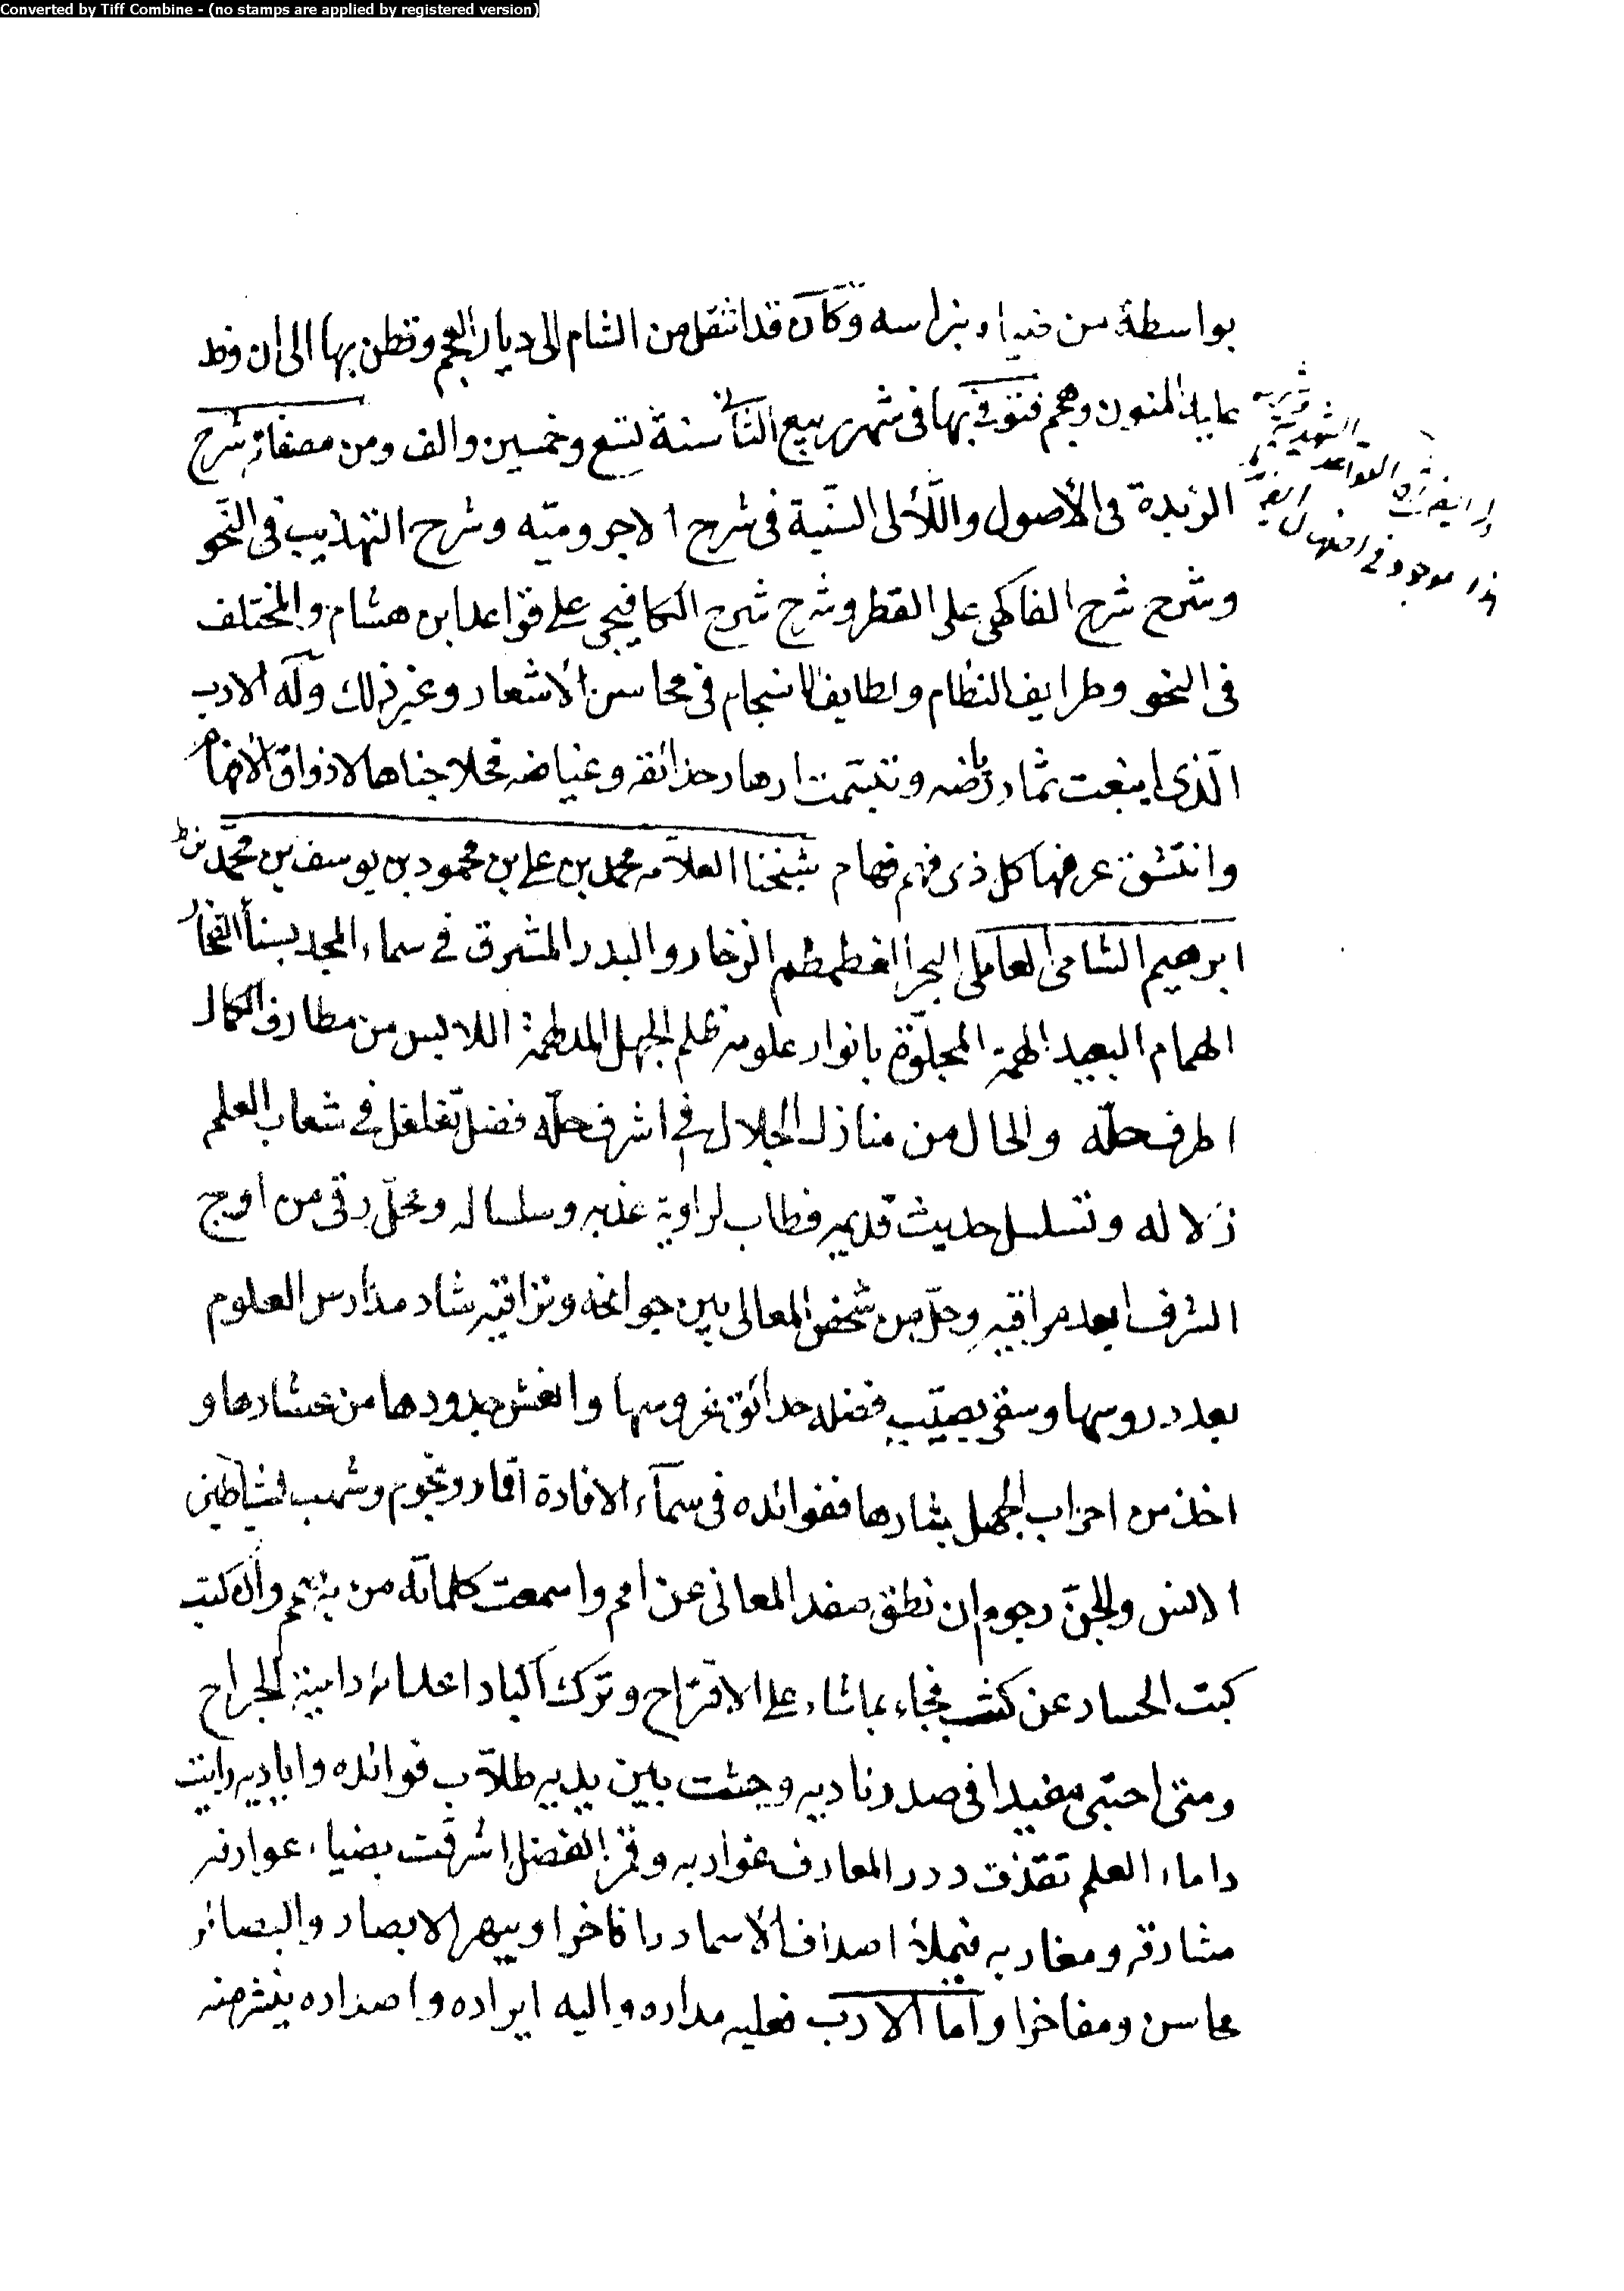 Converted by Tiff Combine - (no stamps are applied by registered version)
بواسطة من ضياء نبراسه وكان قد انتقل من الشام الى ديار العجم وقطن بها الى ان وفد
عليه المنون وهجم فتوفى بها فى شهر ربيع الثانى سنة تسع وخمسين والف ومن مصنفاته شرح
الزبدة فى الأصول واللآلى السنّية فى شرح الاجروميّه وشرح التهذيب فى النّحو
وشرح شرح الفاكهى على القطر وشرح شرح الكافيجى على قواعد ابن هشام والمختلف
فى النحو وطرايف النظام ولطايف الانسجام فى محاسن الاشعار وغير ذلك وله الادب
الّذى اينعت ثمار رياضه وتبسّمت ازهار حدائقه وغياضه فحلا جناها لاذواق الافهام
وانتشق عرفها كل ذى فهم فهام شيخنا العلاّمه محمد بن على بن محمود بن يوسف بن محمّد بن
ابرهيم الشامى العاملى البحر الغطمطم الزخار والبدر المشرق فى سماء المجد بسنأ الفخار
الهمام البعيد الهمة المجلوّة بانوار علومه ظلم الجهل المدلهمّة اللابس من مطارف الكمال
اطرف حلّه والحال من منازل الجلال فى اشرف حلّه فضل تغلغل فى شعاب العلم
زلاله وتسلسل حديث قديمه فطاب لراويه عذبه وسلساله ومحلّ رقى من اوج
الشرف ابعد مراقيه وحلّ من شخص المعالى بين جوانحه وتراقيه شاد مدارس العلوم
بعد دروسها وسقى بصيّب فضله حدائق غروسها وانعش جدودها من عثارها و
اخذ من احزاب الجهل بثارها ففوائده فى سمآء الافادة اقمار ونجوم وشهب لشياطين
الانس والجنّ رجوم ان نطق صفد المعانى عن امم واسمعت كلماته من به صمم وان كتب
كبت الحساد عن كثب فجاء بماشاء على الاقتراح وترك اكباد اعدائه دامية الجراح
ومتى احتبى مفيدا فى صدر ناديه وجثت بين يديه طلاّب فوائده واياديه رايت
داماء العلم تقذف درر المعارف غواربه وقمر الفضل اشرقت بضياء عوارفه
مشارقه ومغاربه فيملأ اصداف الاسماع درا فاخرا ويبهر الابصار والبصائر
محاسن ومفاخرا وامّا الادب فعليه مداره واليه ايراده واصداره ينشر منه